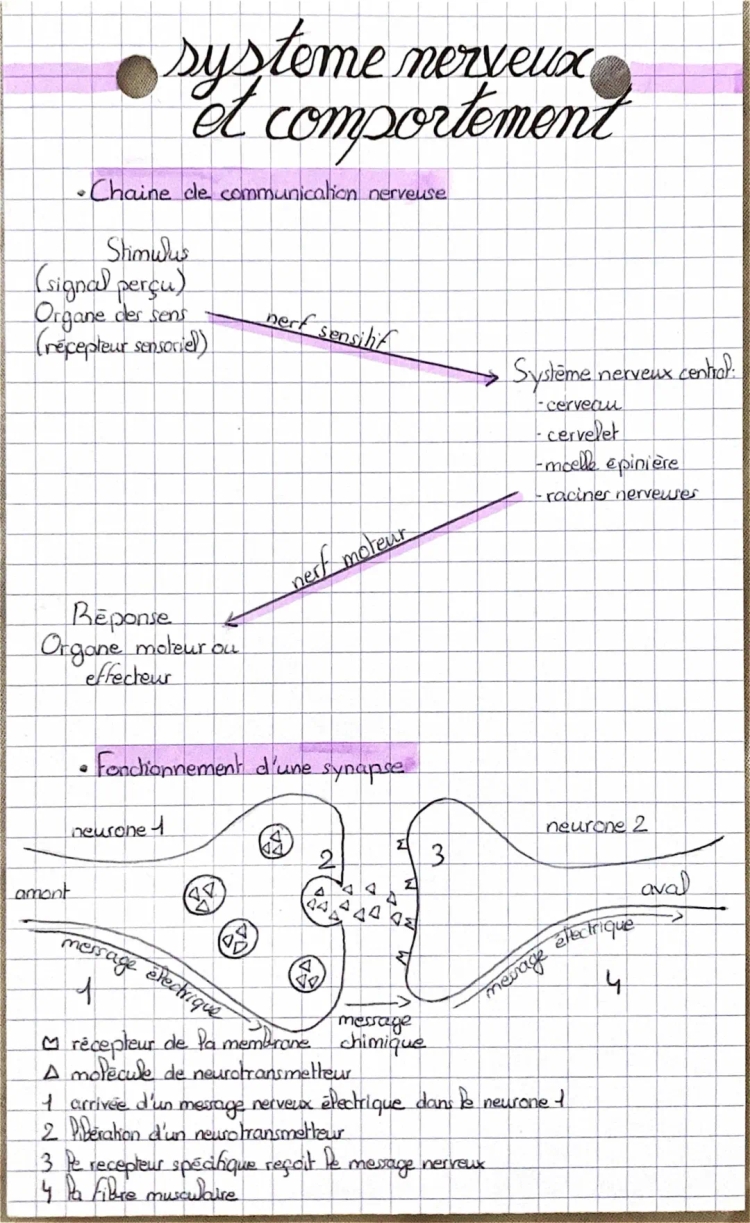 systeme nerveux
et comportement
• Chaine de communication nerveuse
Stimulus
(signal perçu)
Organe des sens
(récepteur sensoriel)
nerf sensitif
Système nerveux central:
- cerveau
- cervelet
- moelle épinière
- racines nerveuses
nerf moteur
Réponse
Organe moteur ou
effecteur
• Fonctionnement d'une synapse
neurone 1
neurone 2
2
3
amont
aval
message électrique
1
message
chimique
message électrique
4
récepteur de la membrane
molécule de neurotransmetteur
1 arrivée d'un message nerveux électrique dans le neurone 1
2 libération d'un neurotransmetteur
3 le recepteur spécifique reçoit le message nerveux
4 la fibre musculaire